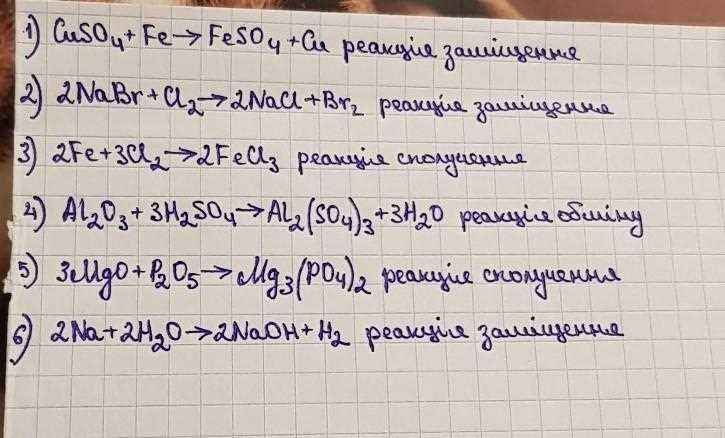 1) CuSO₄ + Fe → FeSO₄ + Cu реакція заміщення
2) 2NaBr + Cl₂ → 2NaCl + Br₂ реакція заміщення
3) 2Fe + 3Cl₂ → 2FeCl₃ реакція сполучення
4) Al₂O₃ + 3H₂SO₄ → Al₂(SO₄)₃ + 3H₂O реакція обміну
5) 3MgO + P₂O₅ → Mg₃(PO₄)₂ реакція сполучення
6) 2Na + 2H₂O → 2NaOH + H₂ реакція заміщення